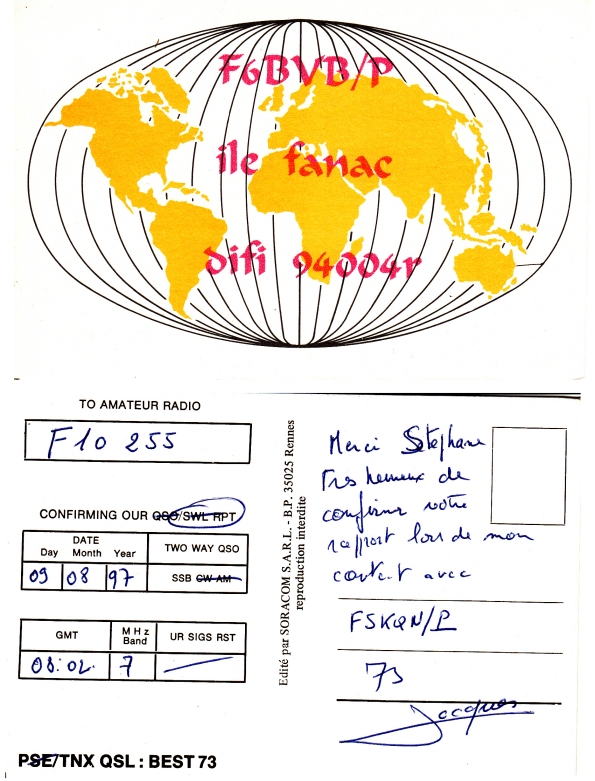 F6BVB/P
ile fanac
difi 94004r
TO AMATEUR RADIO
F10 255
CONFIRMING OUR QSO/SWL RPT
DATE
Day Month Year
TWO WAY QSO
09 08 97
SSB CW AM
GMT
MHz Band
UR SIGS RST
08:02.
7
PSE/TNX QSL : BEST 73
Edité par SORACOM S.A.R.L. - B.P. 35025 Rennes
reproduction interdite
Merci Stéphane
Tres heureux de
confirmer votre
rapport lors de mon
contact avec
F5KQN/P
73
Jacques